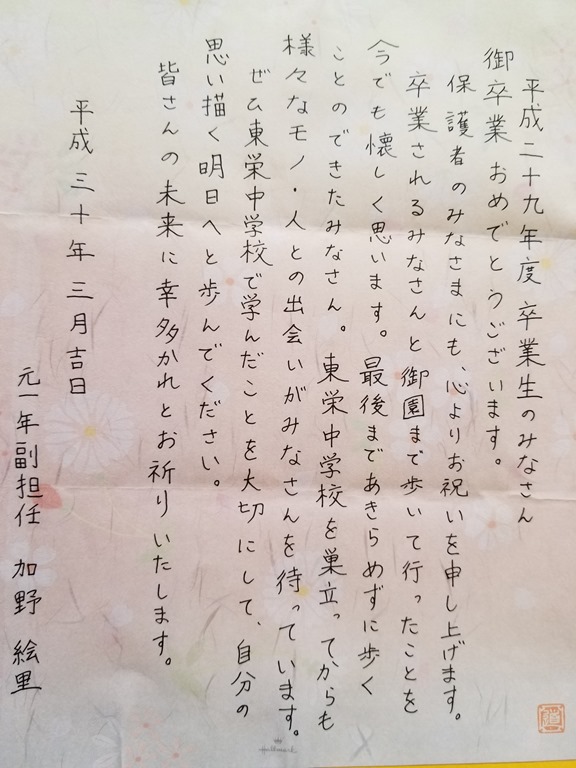 平成二十九年度 卒業生のみなさん
御卒業 おめでとうございます。
保護者のみなさまにも、心よりお祝いを申し上げます。
卒業されるみなさんと御園まで歩いて行ったことを
今でも懐しく思います。最後まであきらめずに歩く
ことのできたみなさん。東栄中学校を巣立ってからも
様々なモノ・人との出会いがみなさんを待っています。
ぜひ東栄中学校で学んだことを大切にして、自分の
思い描く明日へと歩んでください。
皆さんの未来に幸多かれとお祈りいたします。
平成三十年三月吉日
元一年副担任 加野 絵里
Hallmark